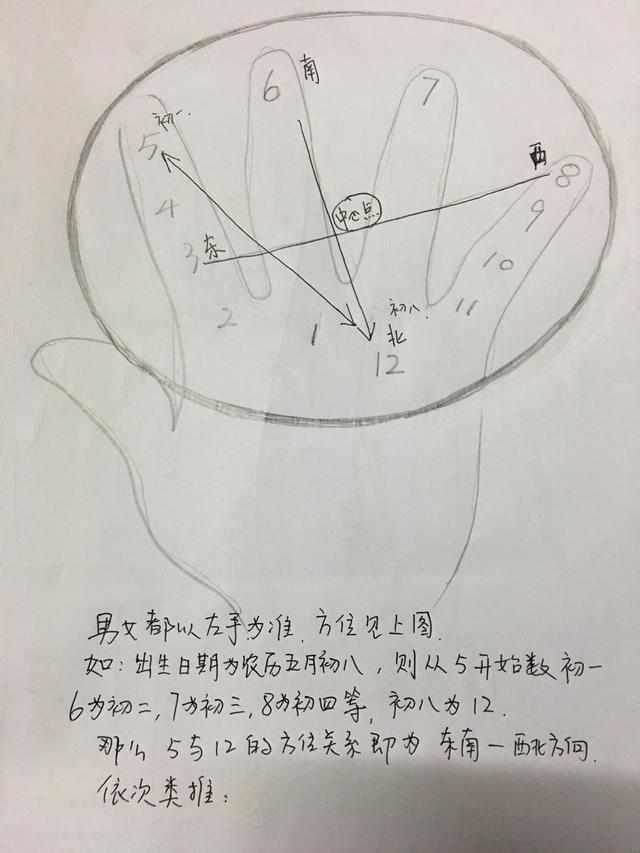 6 南
7
初一
5
西
8
4
中心点
9
3 东
10
2
1
初八.
11
北
12
男女都以左手为准.方位见上图.
如:出生日期为农历五月初八,则从5开始数初一
6为初二,7为初三,8为初四等,初八为12.
那么 5与12的方位关系即为 东南一西北方向.
依次类推: